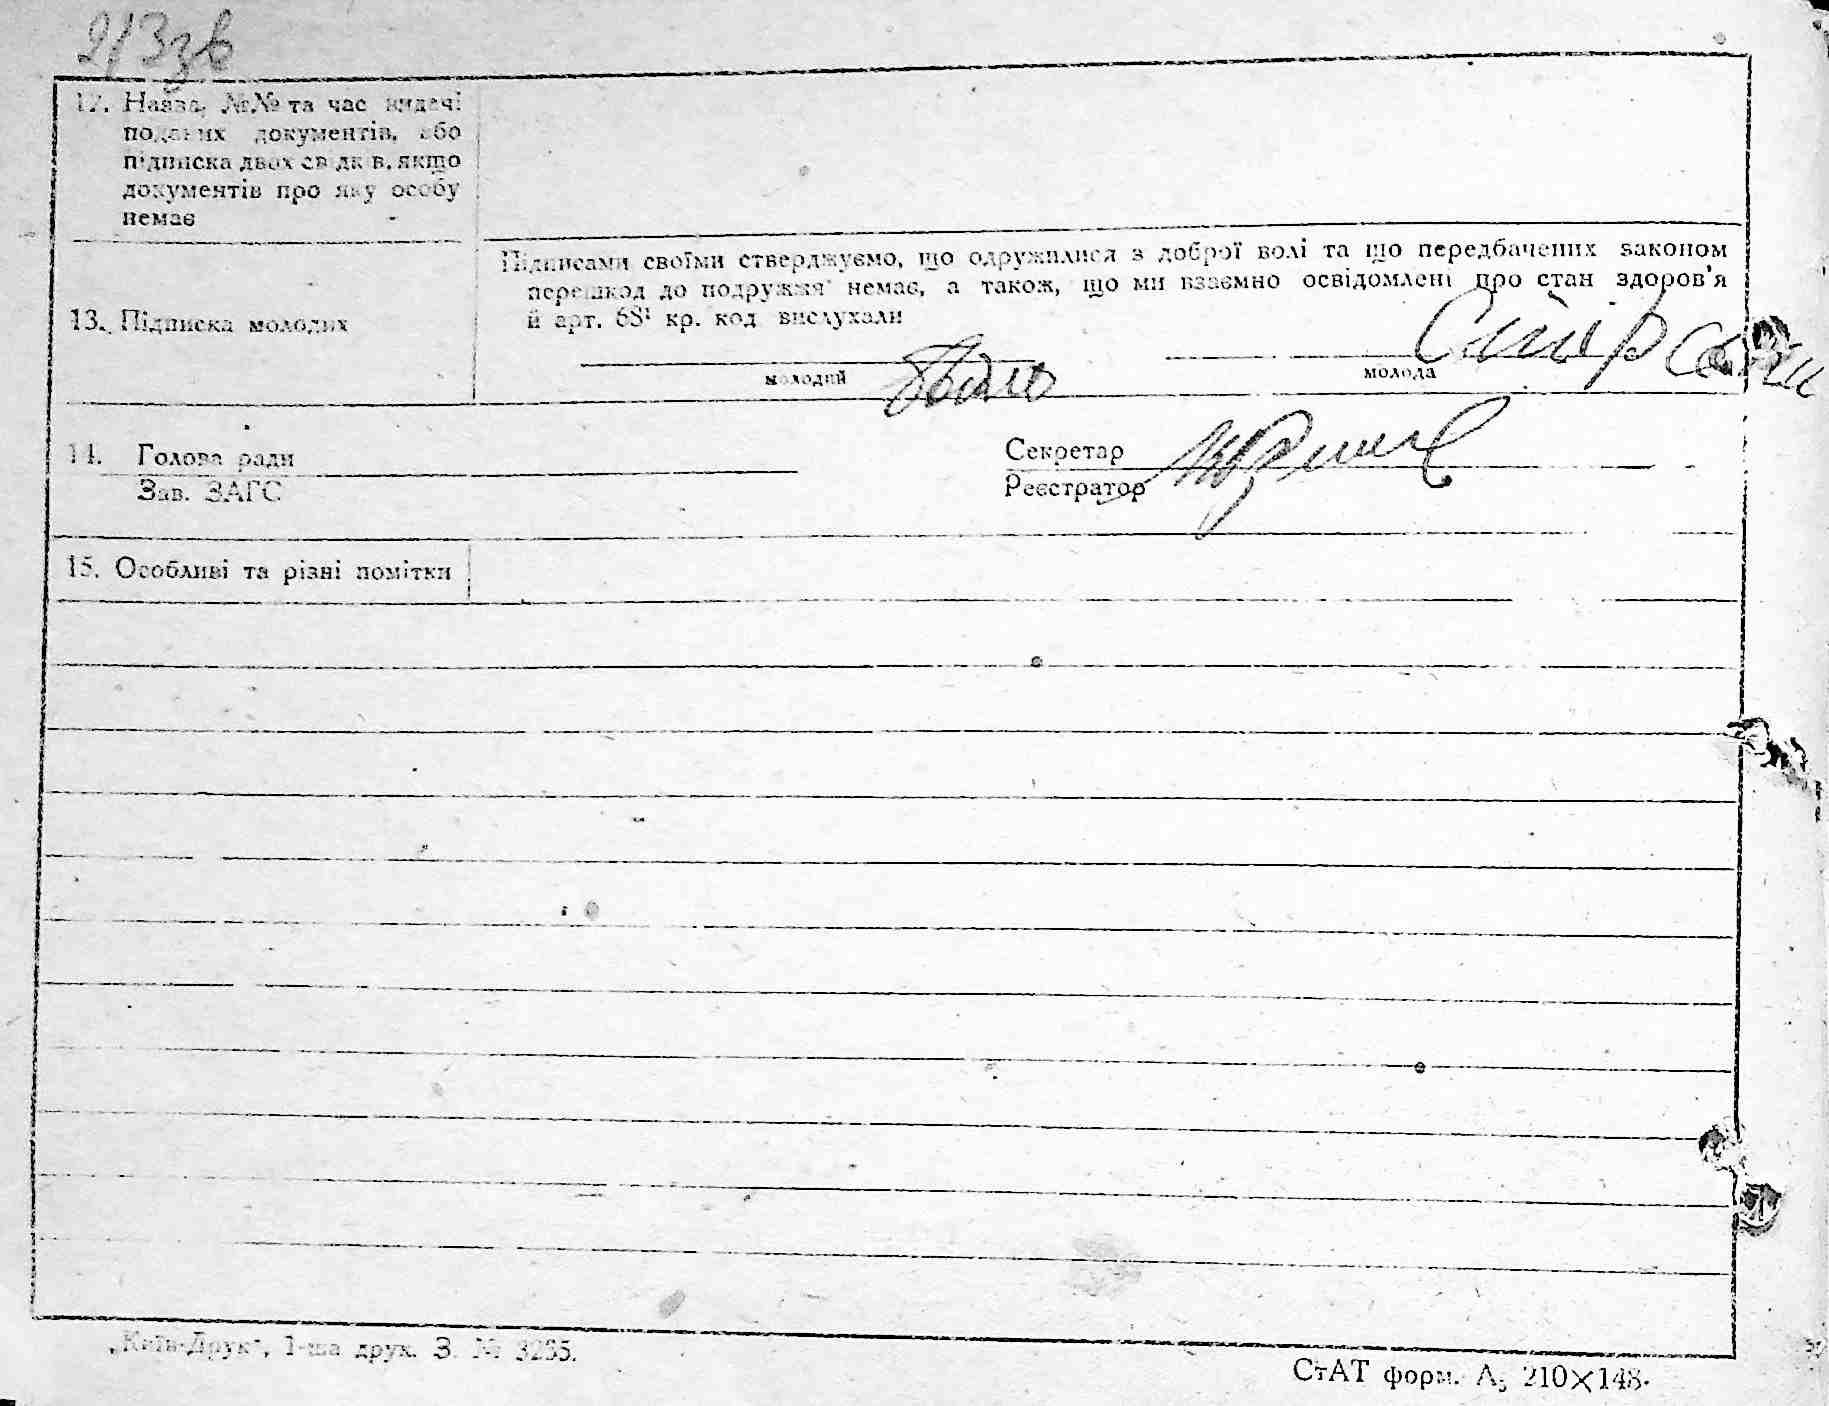 213зв
12. Назва, №№ та час видачі
поданих документів, або
підписка двох свідків, якщо
документів про яку особу
немає
Підписами своїми стверджуємо, що одружилися з доброї волі та що передбачених законом
перешкод до подружжя немає, а також, що ми взаємно освідомлені про стан здоров'я
й арт. 68¹ кр. код вислухали
13. Підписка молодих
молодий
молода
14. Голова ради
Секретар
Зав. ЗАГС
Реєстратор
15. Особливі та різні помітки
„Київ-Друк", 1-ша друк. З. № 3235.
СтАТ форм. А₅ 210×148.